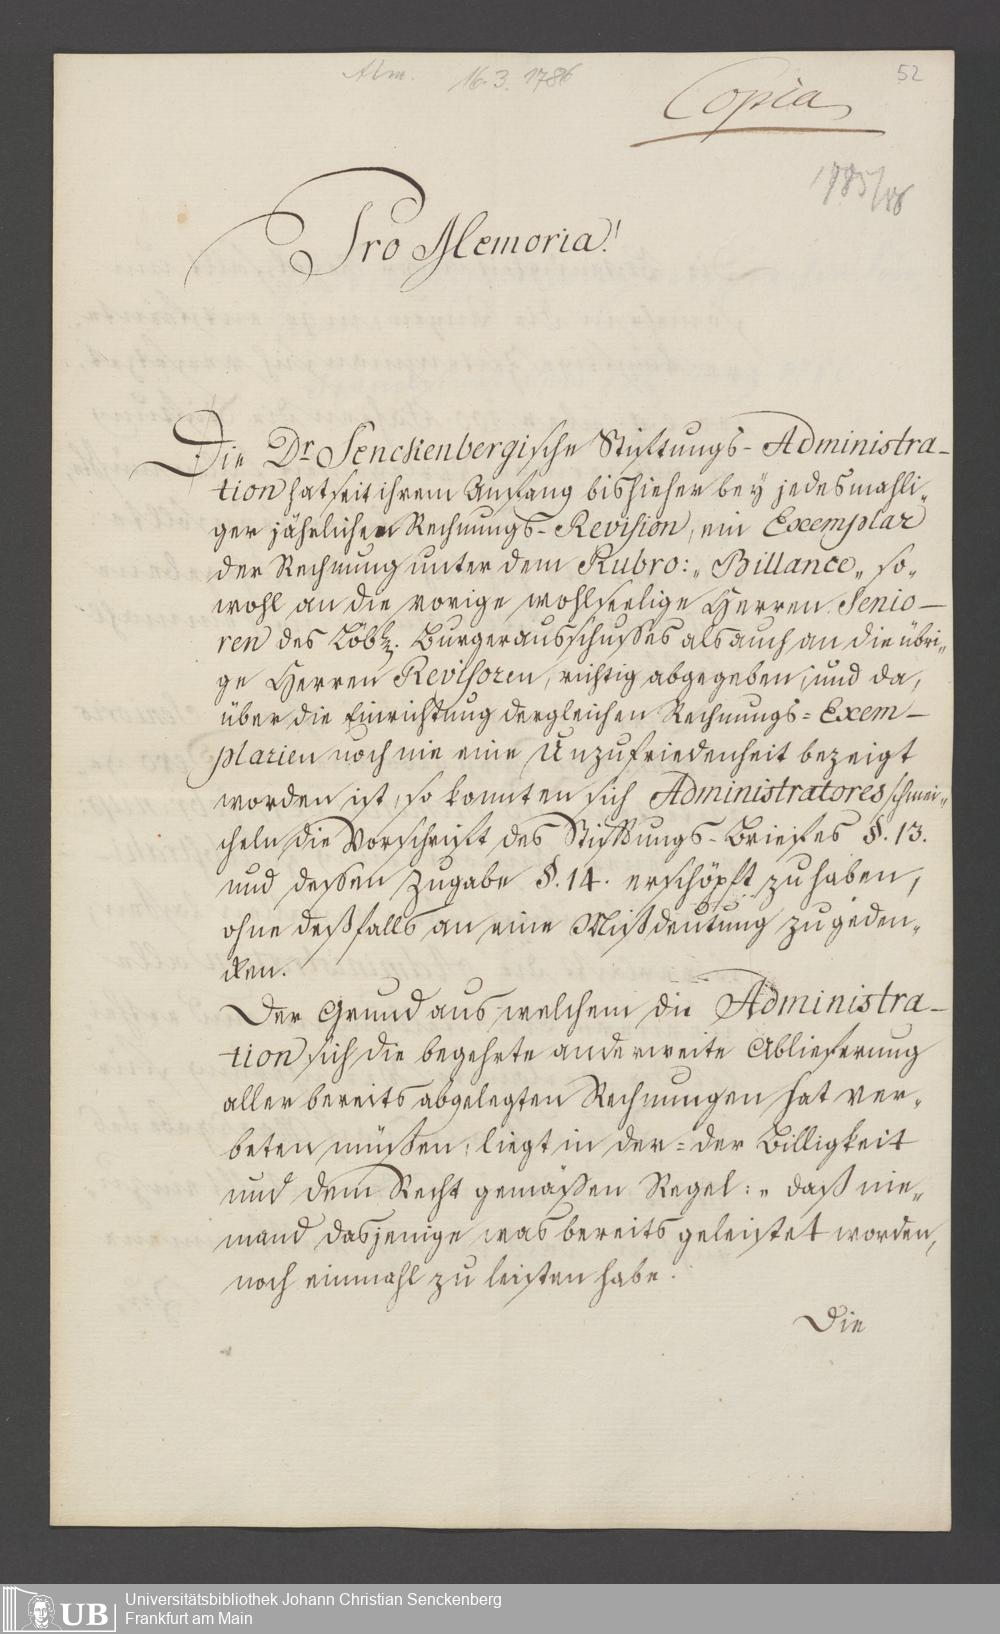 Adm. 16.3.1786
52
Copia
1785/86
Pro Memoria!
Die Dr Senckenbergische Stiftungs-Administra-
tion hat seit ihrem Anfang bishieher bey jedesmahli„
ger jährlichen Rechnungs-Revision, ein Exemplar
der Rechnung unter dem Rubro: „Billance„ so„
wohl an die vorige wohlseelige Herren Senio-
ren des Löbl. Burgerausschusses als auch an die übri„
ge Herren Revisoren, richtig abgegeben, und da,
über die Einrichtung dergleichen Rechnungs=Exem-
plarien noch nie eine Unzufriedenheit bezeigt
worden ist, so konnten sich Administratores schmei„
cheln die Vorschrift des Stifftungs-Briefes §. 13.
und dessen Zugabe §. 14. erschöpft zu haben,
ohne deßfalls an eine Mißdeutung zu geden„
cken.
Der Grund aus welchem die Administra-
tion sich die begehrte anderweite Ablieferung
aller bereits abgelegten Rechnungen hat ver„
beten müssen, liegt in der=der Billigkeit
und dem Recht gemässen Regel: „daß nie„
mand dasjenige was bereits geleistet worden,
noch einmahl zu leisten habe.
Die
UB
Universitätsbibliothek Johann Christian Senckenberg
Frankfurt am Main